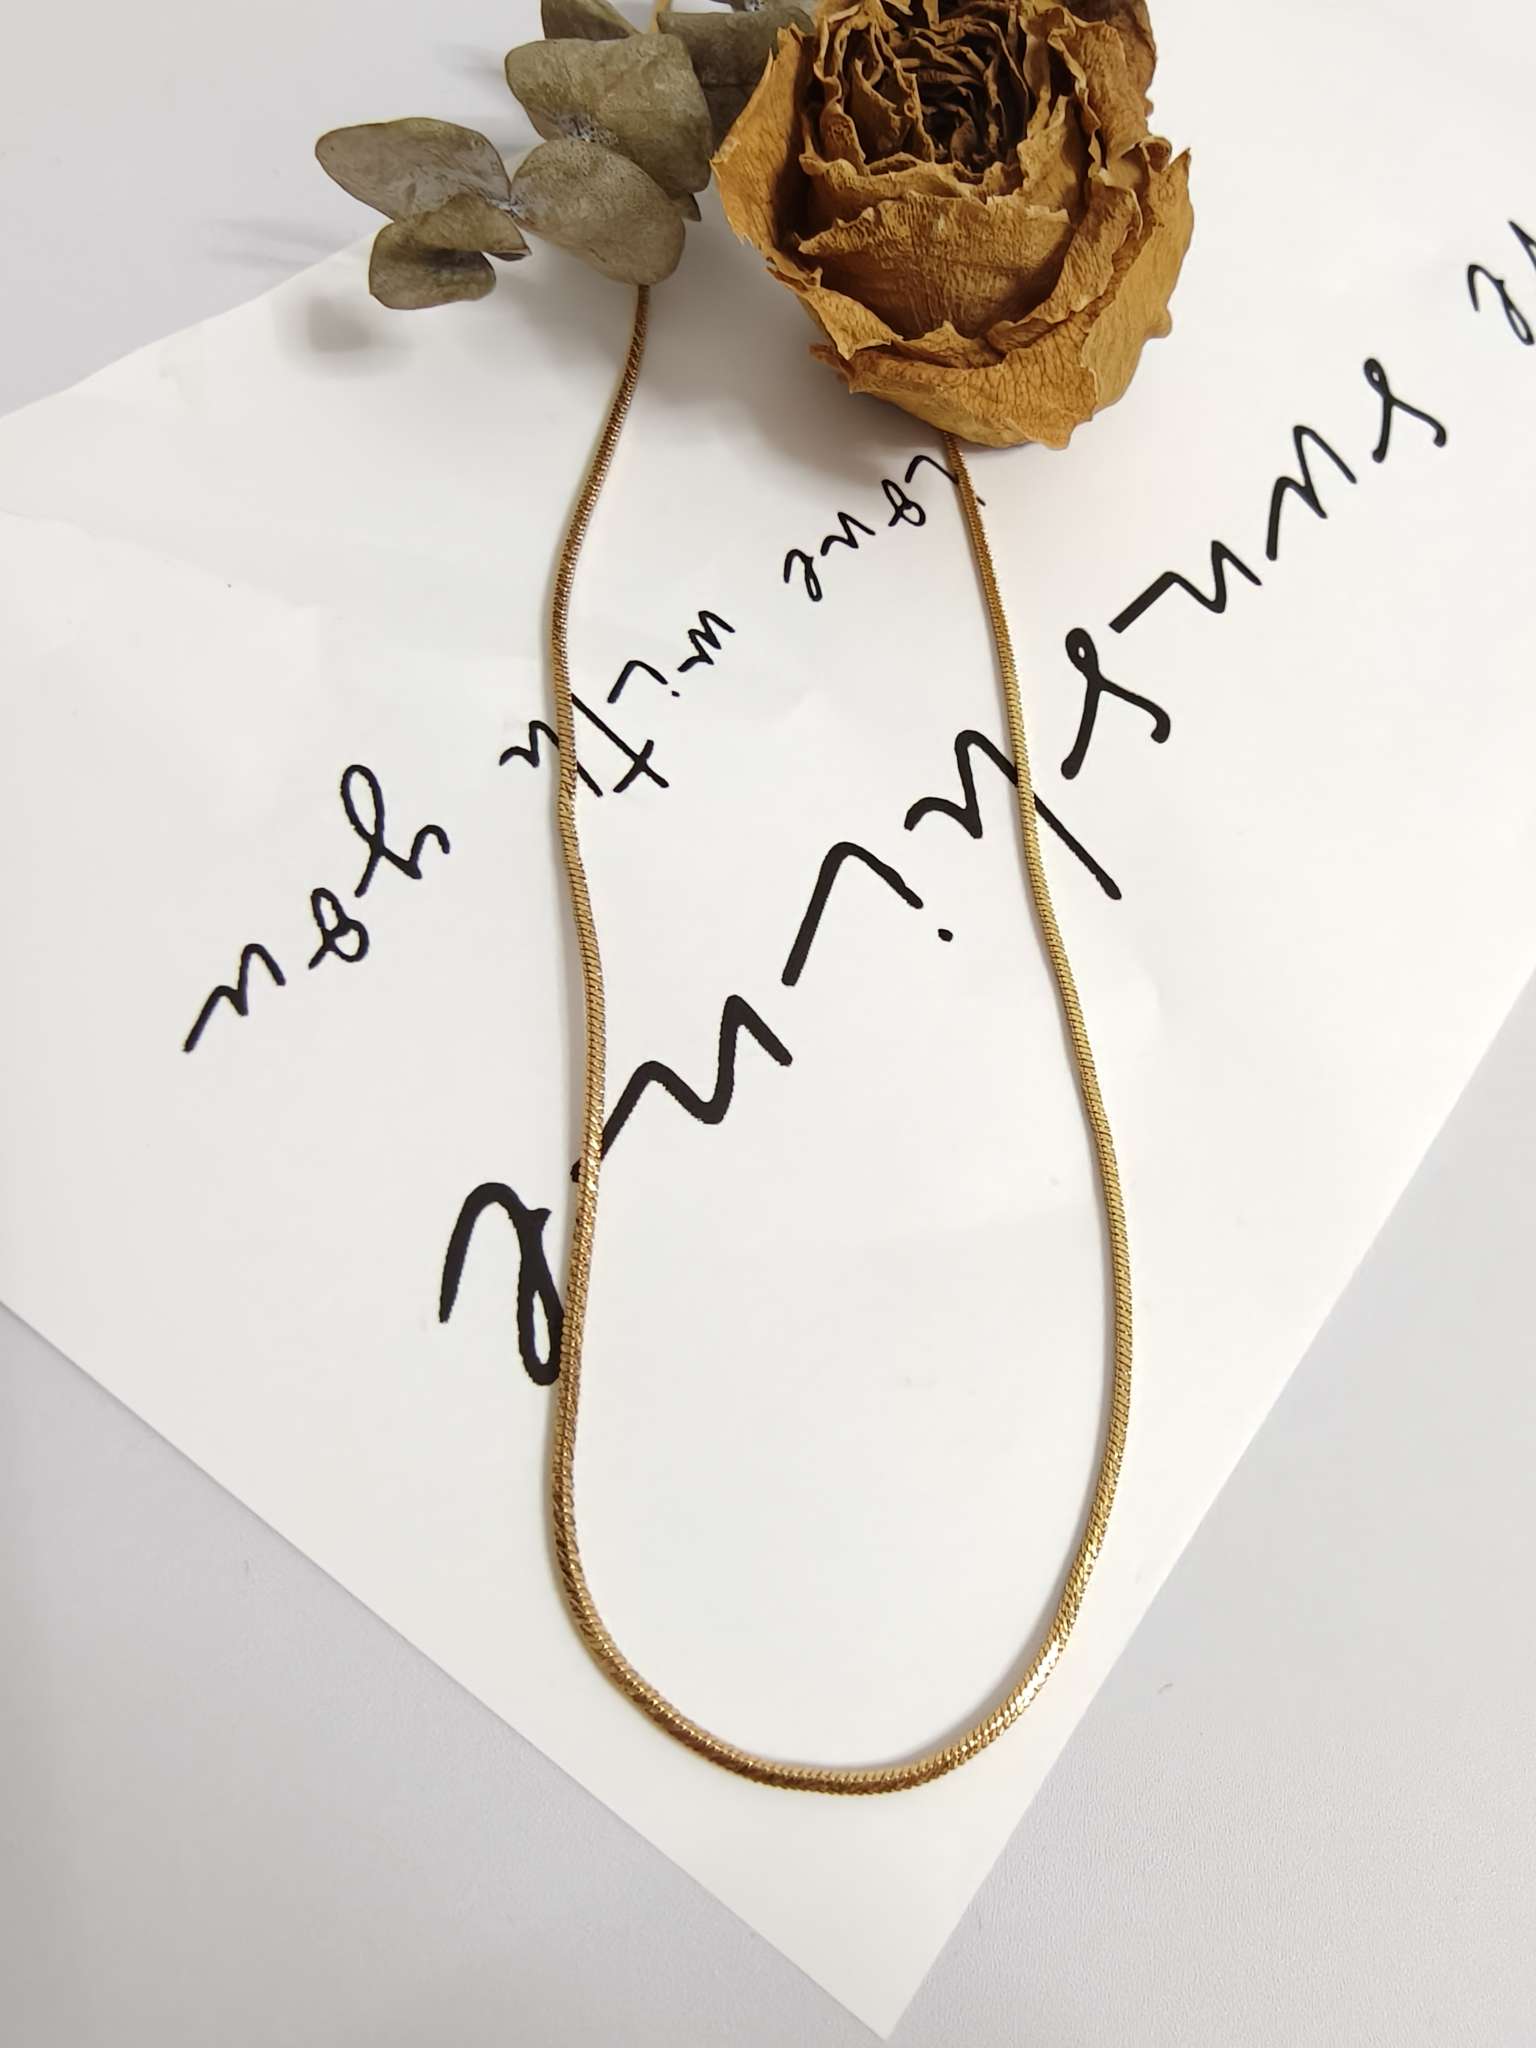 sunshine
love with you